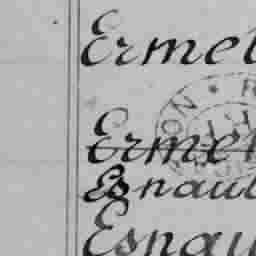 Ermel
Ermel
Esnaul
Esnau